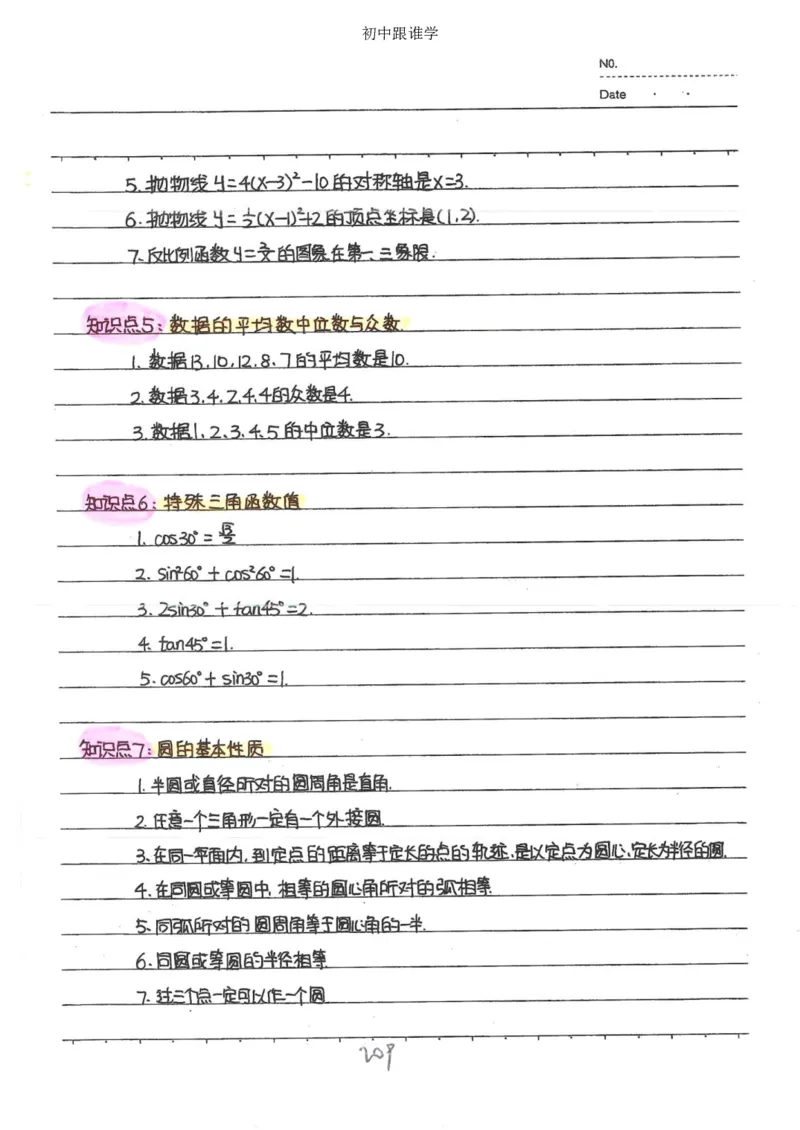 初中跟谁学
N0.
Date
5. 抛物线y=4(x-3)²-10的对称轴是x=3.
6. 抛物线y=½(x-1)²+2的顶点坐标是(1,2).
7. 反比例函数y=2/x的图象在第一、三象限.
知识点5:数据的平均数中位数与众数.
1. 数据13,10,12,8,7的平均数是10.
2. 数据3,4,2,4,4的众数是4.
3. 数据1、2、3、4、5的中位数是3.
知识点6:特殊三角函数值
1. cos30°=√3/2
2. sin²60°+cos²60°=1.
3. 2sin30°+tan45°=2.
4. tan45°=1.
5. cos60°+sin30°=1.
知识点7:圆的基本性质
1. 半圆或直径所对的圆周角是直角.
2. 任意一个三角形一定有一个外接圆.
3. 在同一平面内,到定点的距离等于定长的点的轨迹,是以定点为圆心,定长为半径的圆.
4. 在同圆或等圆中,相等的圆心角所对的弧相等.
5. 同弧所对的圆周角等于圆心角的一半.
6. 同圆或等圆的半径相等.
7. 过三个点一定可以作一个圆.
209